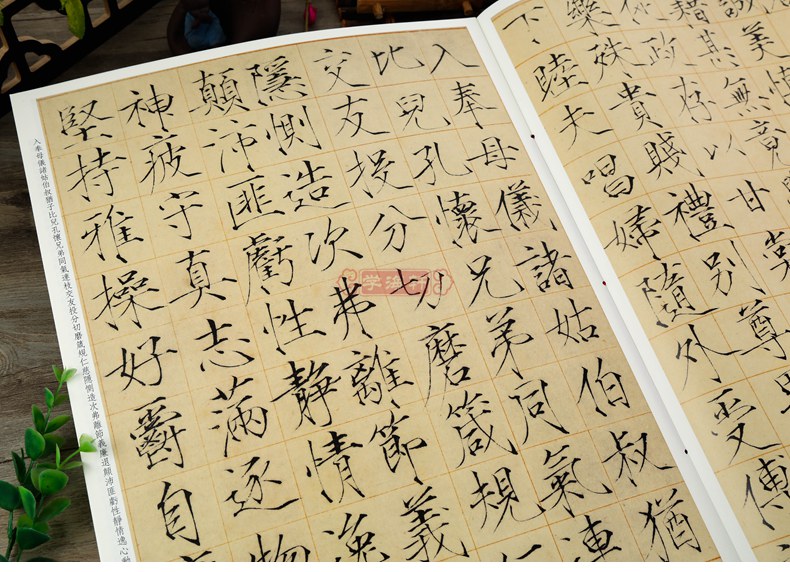 誠美慎
籍甚無竟
從政存以甘棠
樂殊貴賤禮別尊
下睦夫唱婦隨外受傅
入奉母儀諸姑伯叔猶
比兒孔懷兄弟同氣連
交友投分切磨箴規仁
隱惻造次弗離節義
顛沛匪虧性靜情逸
神疲守真志滿逐物
堅持雅操好爵自
入奉母儀諸姑伯叔猶子比兒孔懷兄弟同氣連枝交友投分切磨箴規仁慈隱惻造次弗離節義廉退顛沛匪虧性靜情逸心動